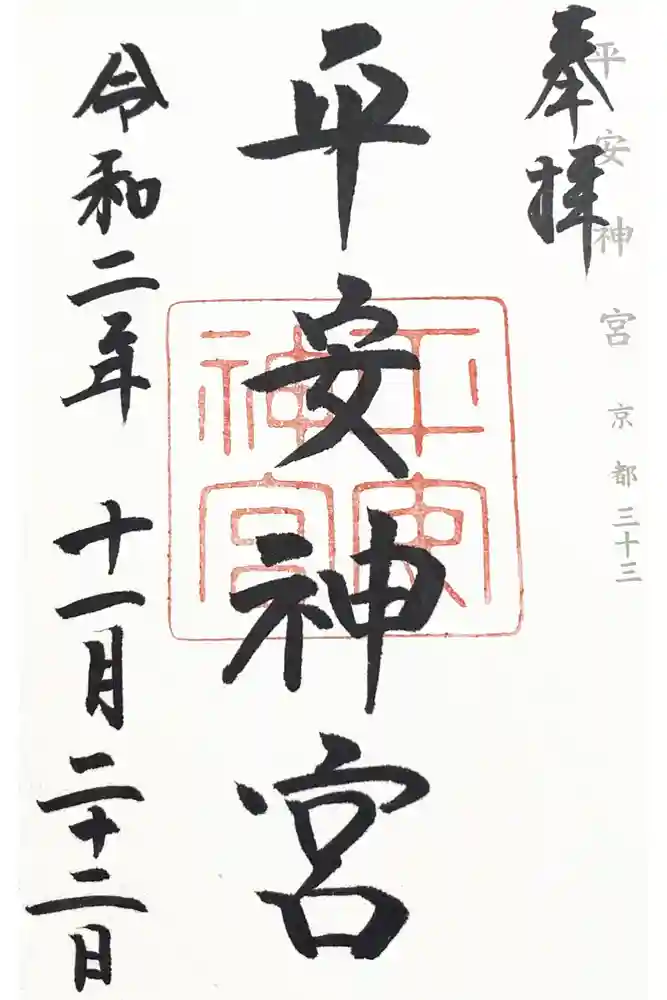 平安神宮 京都三十三
奉拝
平安神宮
平安神宮
令和二年 十一月 二十二日